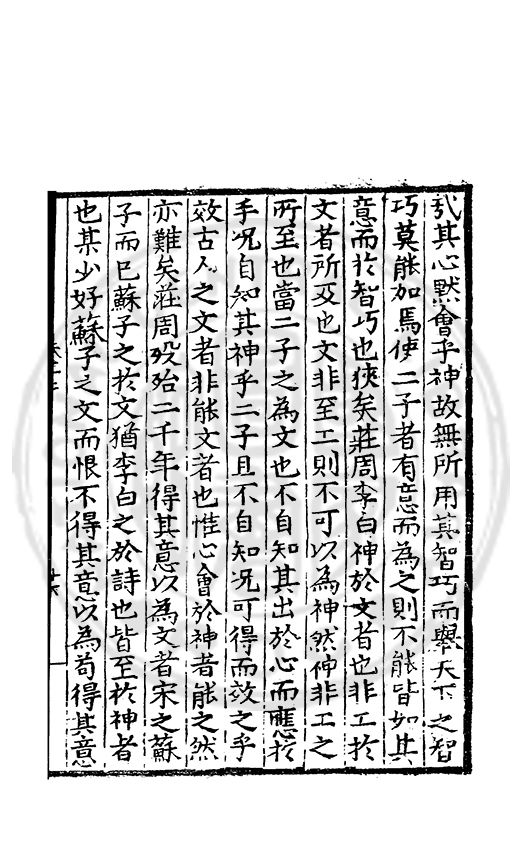 哉其心默會乎神故無所用其智巧而舉天下之智
巧莫能加焉使二子者有意而為之則不能皆如其
意而於智巧也狹矣莊周李白神於文者也非工於
文者所及也文非至工則不可以為神然神非工之
所至也當二子之為文也不自知其出於心而應於
手况自知其神乎二子且不自知况可得而效之乎
效古人之文者非能文者也惟心會於神者能之然
亦難矣莊周歿殆二千年得其意以為文者宋之蘇
子而已蘇子之於文猶李白之於詩也皆至於神者
也某少好蘇子之文而恨不得其意以為苟得其意